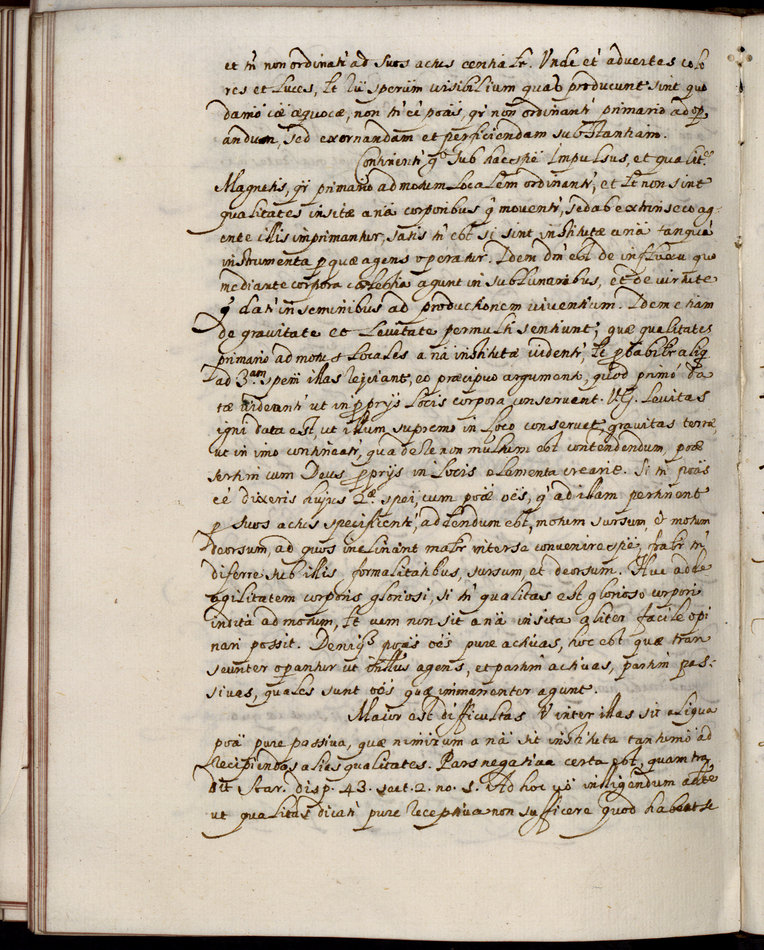 et tñ non ordinatr̃ ad suos actus cent́ha lr̃. Vnde et́ advertes colo
res et luces, lt́ sperim̃ visibilium quas producunt sint quo
damõ cæ æquocæ, non tñ eé poäs, qr̃ non ordinantr̃ primario ad oṕ
andum, sed exornandam et perficiendam substantiam.
Continentr̃ q̃ sub hac spẽ Impulsus, et qualit.es
Magnetis, qr̃ primario ad motum localem ordinantr̃, et lt́ non sint
qualitates insitæ a nã corporibus q̃ moventr̃, sed ab extrinseco ag-
ente illis imprimantur, satis tñ est si sint institutæ a nã tanquã
instrumenta p quæ agens operatur. Idem dñ est de influxu quo
mediante corpora coelestia agunt in sublunaribus, et de virtute
q̃ datr̃ in seminibus ad productionem viventium. Idem etiam
de gravitate et levitate permulti sentiunt; quæ qualitates
primario ad motus locales a nã institutæ videntr̃, lt́ pbabilr̃ aliq̃
ad 3.am spẽm illas rejiciant, eo præcipuo argumento, quod primo da
tæ videantr̃ ut in pprijs locis corpora conservent. V.G. levitas
igni data est, ut illum supremo in loco conservet, gravitas terræ,
ut in imo contineatr̃, qua de re non multum est contendendum, poæ
sertim cum Deus pprijs in locis elementa creavit. Si tñ poäs
eé dixeris hujus 2.æ spei, cum poæ oẽs, q̃ ad illam pertinent
p suos actus specificentr̃, addendum est, motum sursum, et motum
deorsum, ad quos inclinant matr̃ inter se convenire spẽ, fratr̃ tñ
diferre sub illis formalitatibus, sursum, et deorsum. Huc adde
agilitatem corporis gloriosi, si tñ qualitas est glorioso corpori
insita ad motum, lt́ vem non sit a nã insita aliter facile opi
nari possit. Deniq3 poäs oẽs pure activas, hoc est quæ tran
seunter operantur ut intellus agens, et partim activas, partim pas-
sivas, quales sunt oẽs quæ immanenter agunt.
Maior est difficultas V inter illas sit aliqua
poä pure passiva, quæ nimirum a nã sit instituta tantumõ ad
recipiendas alias qualitates. Pars negativa certa est, quam tra
dit Soar. disp. 43. sect. 2. no. 1. Ad hoc võ intlligendum adte
ut qualitas dicatr̃ pure receptiva non sufficere quod habeat se